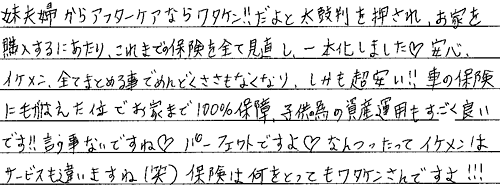 妹夫婦からアフターケアならワタケン!!だよと太鼓判を押され、お家を
購入するにあたり、これまでの保険を全て見直し、一本化しました♡ 安心、
イケメン、全てまとめる事でめんどくささもなくなり、しかも超安い!! 車の保険
にも加えた位でお家まで100%保障、子供の為の資産運用もすごく良い
です!! 言う事ないですね♡ パーフェクトですよ♡ なんつったってイケメンは
サービスも違いますね(笑) 保険は何をとってもワタケンさんですよ!!!